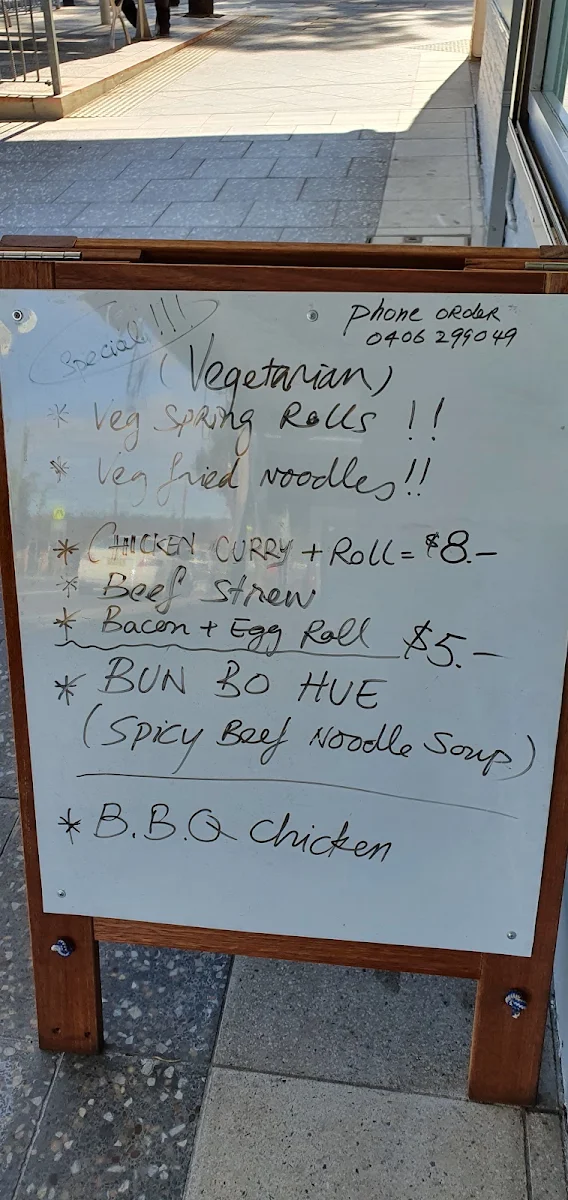 Special!!!
Phone ORDER
0406 299049
(Vegetarian)
* Veg SPRING Rolls !!
* Veg fried Noodles!!
* CHICKEN CURRY + Roll = $8.-
* Beef Strew
* Bacon + Egg Roll $5.-
* BUN BO HUE
(SPicy Beef Noodle Soup)
* B.B.Q Chicken